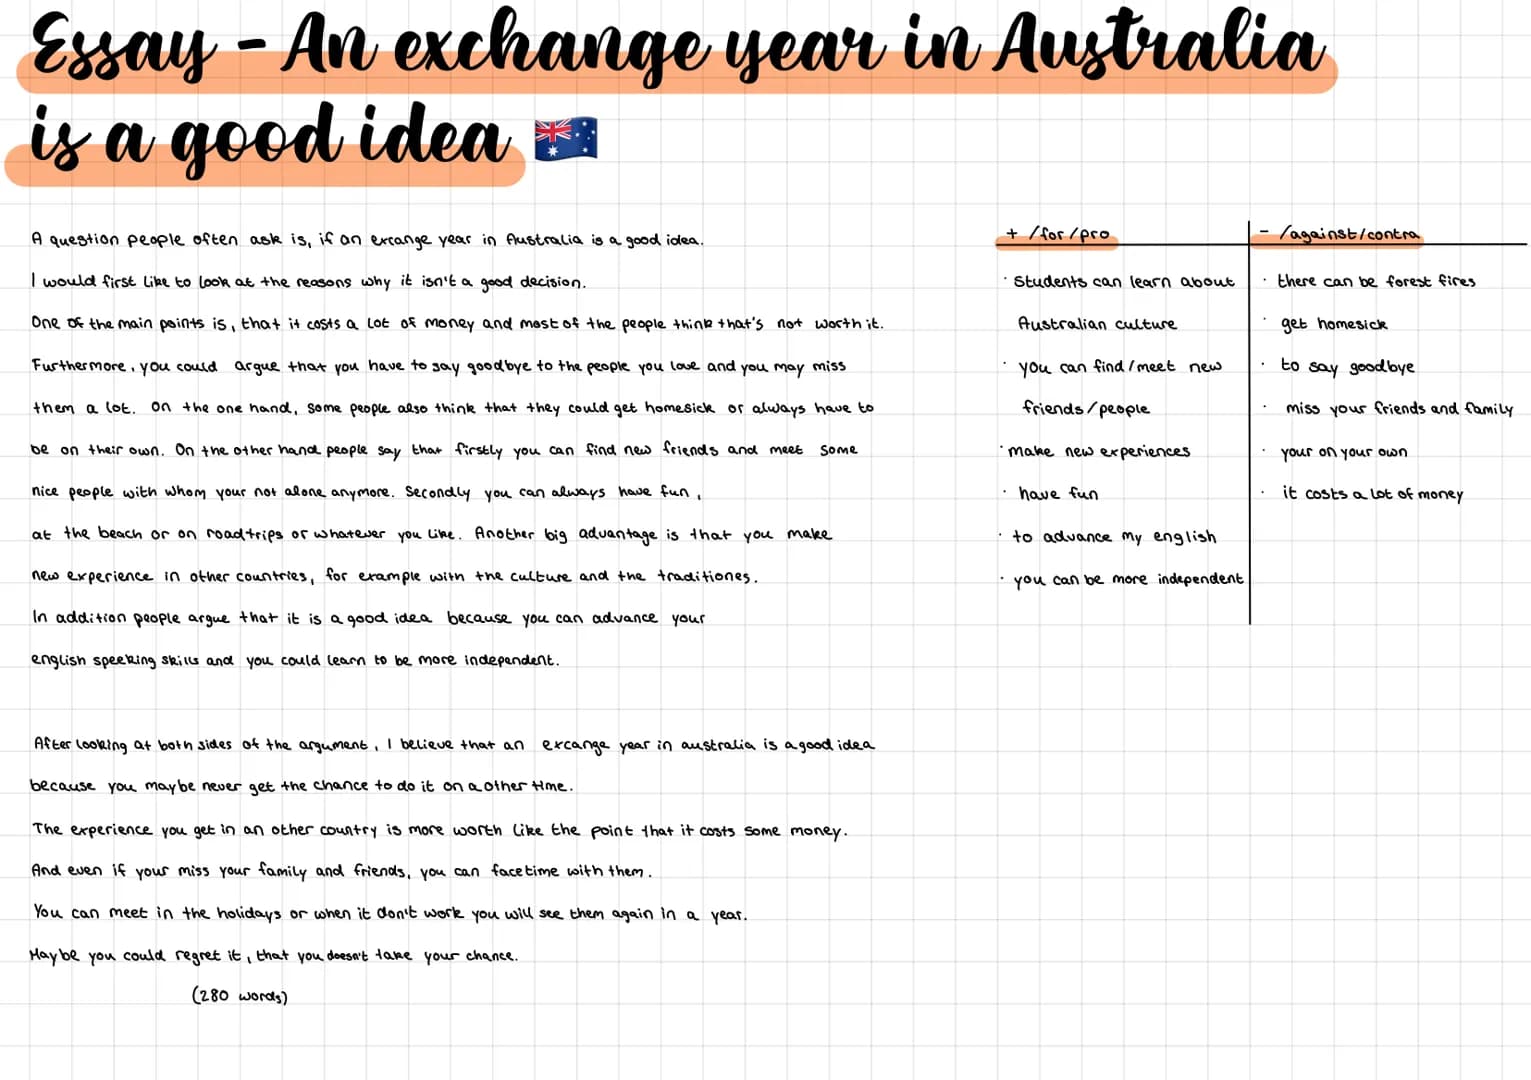 Essay - An exchange year in Australia
is a good idea 🇦🇺
A question people often ask is, if an excange year in Australia is a good idea.
I would first like to look at the reasons why it isn't a good decision.
One of the main points is, that it costs a lot of money and most of the people think that's not worth it.
Furthermore, you could argue that you have to say goodbye to the people you love and you may miss
them a lot. On the one hand, some people also think that they could get homesick or always have to
be on their own. On the other hand people say that firstly you can find new friends and meet some
nice people with whom your not alone anymore. Secondly you can always have fun,
at the beach or on roadtrips or whatever you like. Another big advantage is that you make
new experience in other countries, for example with the culture and the traditiones.
In addition people argue that it is a good idea because you can advance your
english speeking skills and you could learn to be more independent.
After looking at both sides of the argument, I believe that an excange year in australia is a good idea
because you maybe never get the chance to do it on a other time.
The experience you get in an other country is more worth like the point that it costs some money.
And even if your miss your family and friends, you can facetime with them.
You can meet in the holidays or when it don't work you will see them again in a year.
Maybe you could regret it, that you doesn't take your chance.
(280 words)
+ /for/pro
· Students can learn about
Australian culture
· you can find/meet new
friends/people
· make new experiences
· have fun
· to advance my english
· you can be more independent
- /against/contra
· there can be forest fires
· get homesick
· to say goodbye
· miss your friends and family
· your on your own
· it costs a lot of money